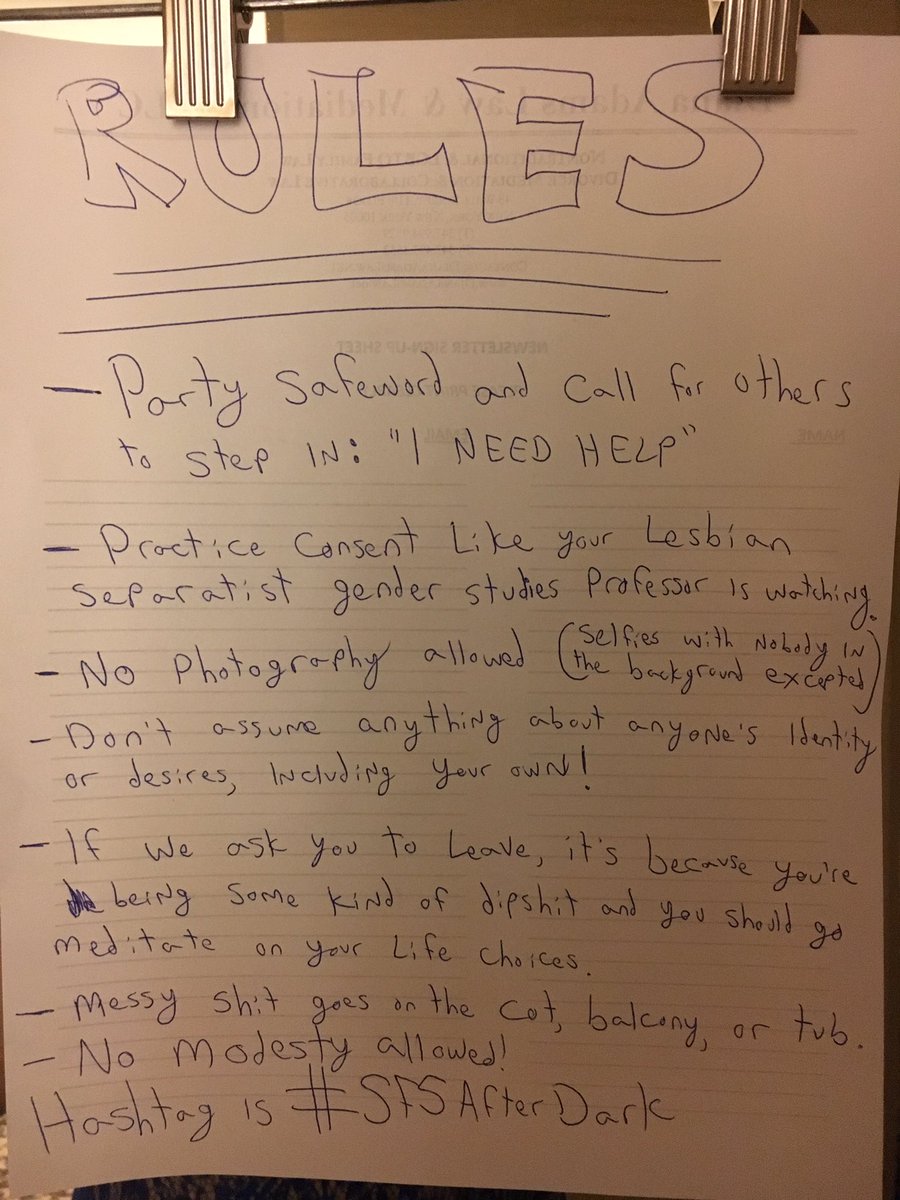 RULES
- Party Safeword and Call for others
to step IN: "I NEED HELP"
- Practice Consent Like your Lesbian
separatist gender studies Professor is watching.
- No Photography allowed (Selfies with Nobody IN
the background excepted)
- Don't assume anything about anyone's Identity
or desires, Including your own!
- If we ask you to Leave, it's because you're
being some kind of dipshit and you should go
meditate on your Life choices.
- Messy shit goes on the cot, balcony, or tub.
- No Modesty allowed!
Hashtag is #SFSAfterDark
Adams Law & Mediation
NONTRADITIONAL &
DIVORCE MEDIATION & COLLABORATIVE LAW
NEWSLETTER SIGN-UP SHEET
NAME